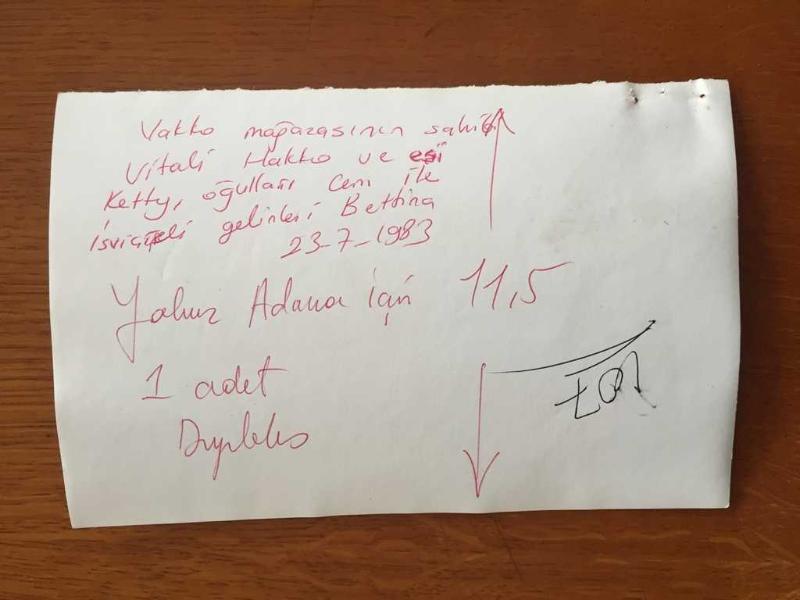 Vakko mağazasının sahibi
Vitali Hakko ve eşi
Ketty, oğulları Cem ile
İsviçreli gelinleri Bettina
23-7-1983
Yalnız Adana için 11,5
1 adet
Dupleks